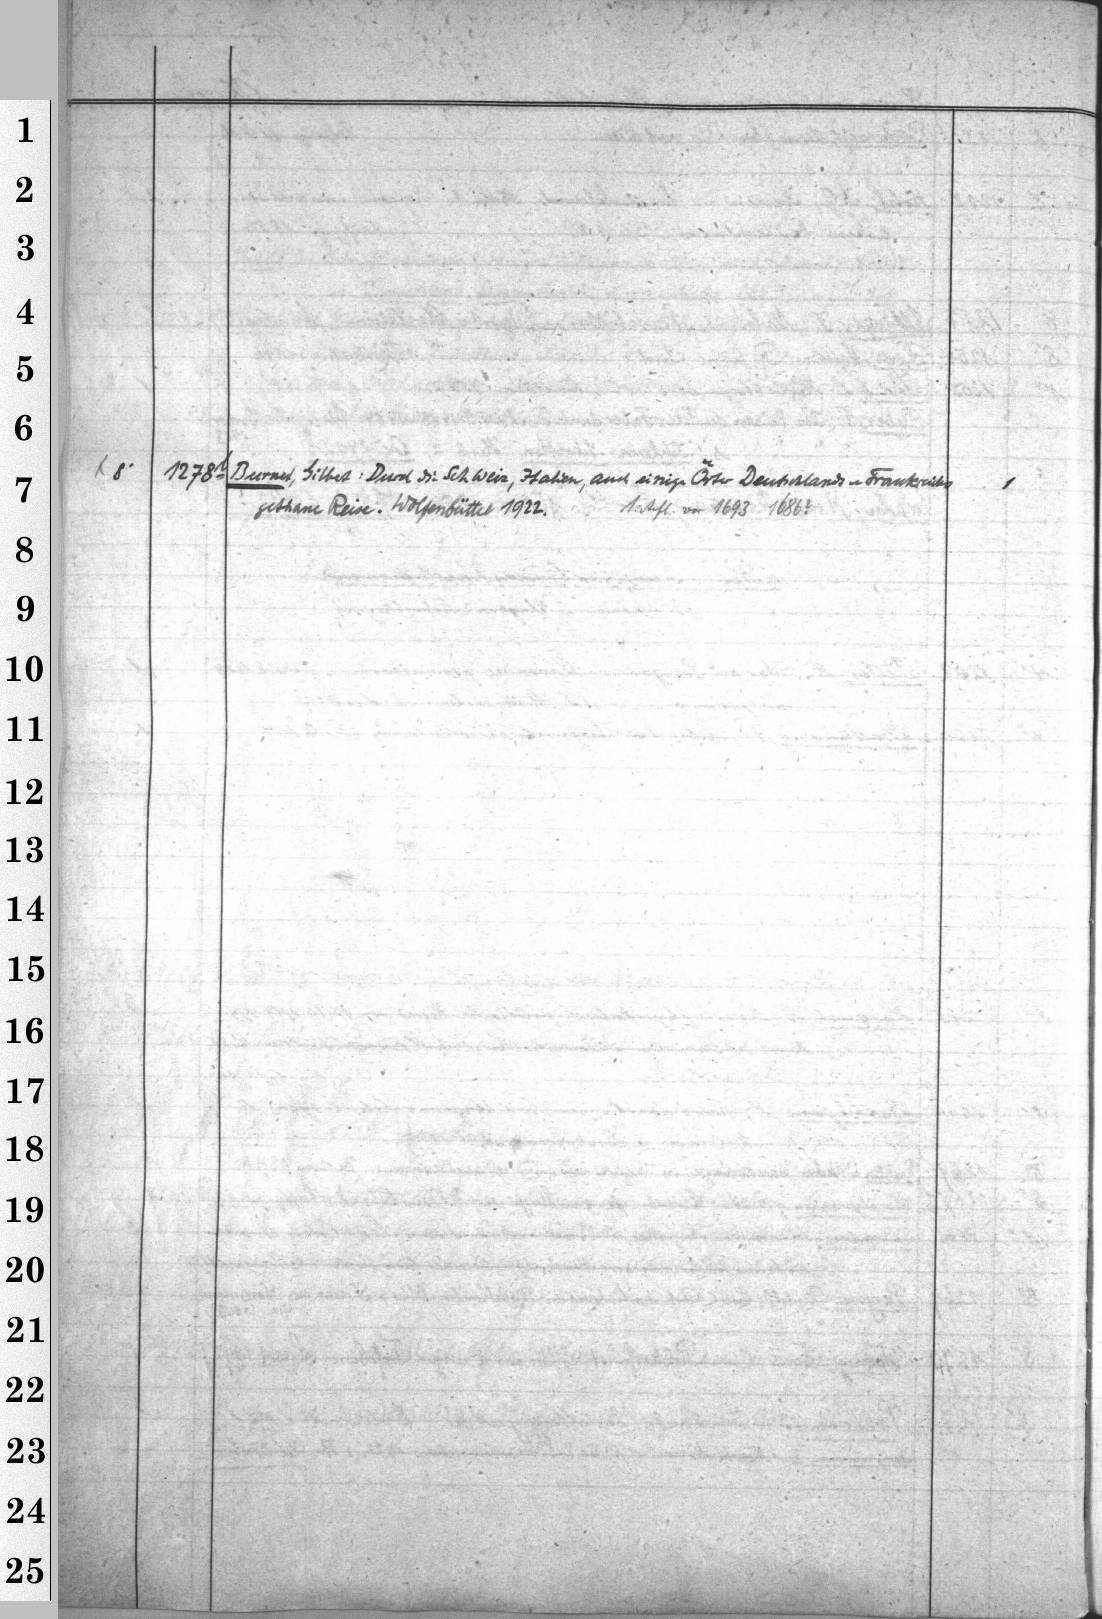 1
2
3
4
5
6
8° 1278 Burnet, Gilbert: Durch die Schweiz, Italien, auch einige Örter Deutschlands u Frankreichs 1
7
gethane Reise. Wolfenbüttel 1922. 1. Aufl. von 1693 1686?
8
9
10
11
12
13
14
15
16
17
18
19
20
21
22
23
24
25